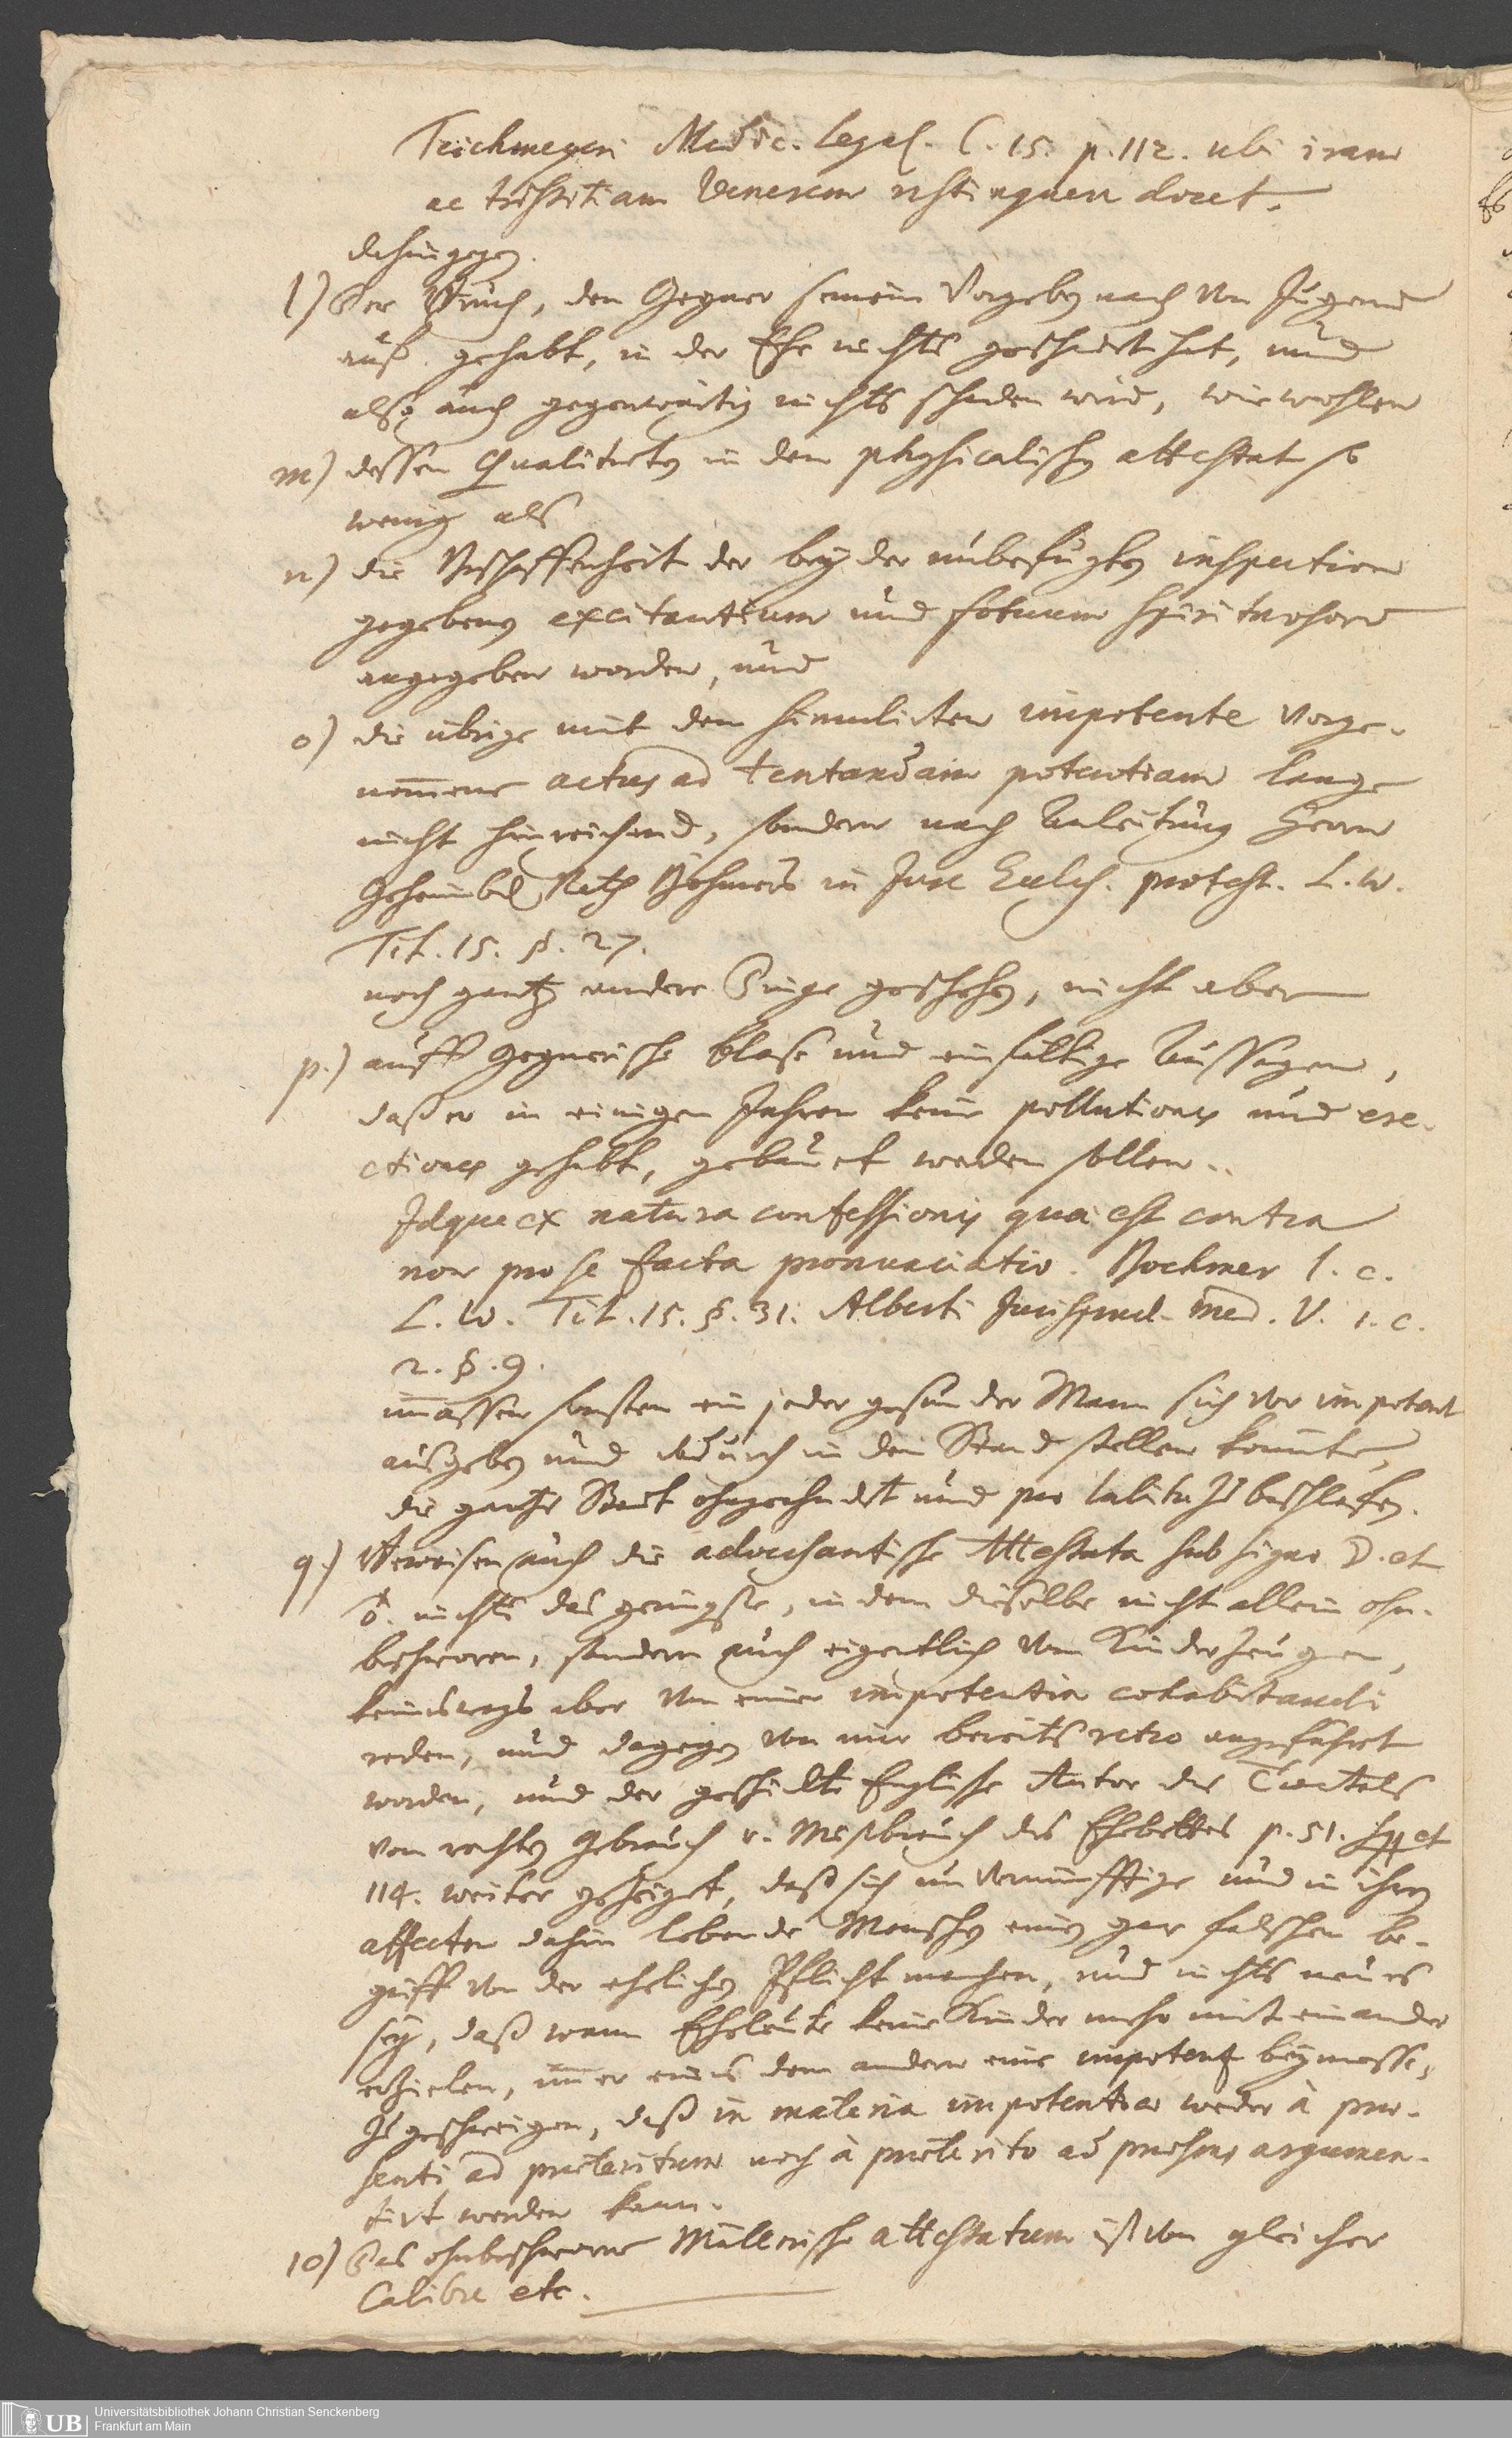 Teichmeyeri Medic. legal. C. 15. p. 112. ubi iram
ac tristitiam Venerem restinguere docet.
dahingegen.
l) Der Bruch, den Gegner seinem Vorgeben nach von Jugend
auff gehabt, in der Ehe nichts geschadet hat, und
also auch gegenwärtig nichts schaden wird, wie wohlen
m) dessen Qualitaeten in dem physicalischen attestat so
wenig als
n) die Beschaffenheit der bey der unbefugten inspection
gegebenen excitantium und fotuum spirituosorum
angegeben worden, und
o) die übrige mit dem simulirten impotente vorge-
nom̄ene actus ad tentandam potentiam lange
nicht hinreichend, sondern nach Anleitung Herrn
Geheimbd. Rath Böhmers in Jure Eccles. protest. L. IV.
Tit. 15. §. 27.
noch gantz andere Dinge geschehen, nicht aber
p.) auff Gegnerische blose und einfältige Aussagen,
daß er in einigen Jahren keine pollutiones und ere-
ctiones gehabt, gebauet werden sollen..
Idque ex natura confessionis quae est contra
non pro se facta pronunciatio. Boehmer l. c.
L. IV. Tit. 15. §. 31. Alberti Jurisprud. med. V. 1. c.
2. §. 9.
im̄assen sonsten ein jeder gesunder Mann sich vor impotent
ausgeben und dadurch in den Stand stellen könnte,
die gantze Stadt ohngeahndet und pro lubitu zu beschlafen.
q.) Beweisen auch die adversantische Attestata sub signo D. et
♂. nichts das geringste, indem dieselbe nicht allein ohn-
beschworen, sondern auch eigentlich vom Kinderzeugen,
keineswegs aber von einer impotentia cohabitandi
reden, und dagegen von mir bereits retro angeführet
worden, und der geschickte Englische Autor des Tractats
vom rechten Gebrauch u. Mißbrauch des Ehebettes p. 51. sqq et
114. weiter gezeiget, daß sich unvernünfftige und in ihren
affecten dahin lebende Menschen einen gar falschen be-
griff von der ehelichen Pflicht machen, und nichts neues
sey, daß wann Eheleute keine Kinder mehr mit einander
erzielen, im̄er eines dem andern eine impotenz beymesse,
zu geschweigen, daß in materia impotentiae weder à prae-
senti ad praeteritum noch à praeterito ad praesens argumen-
tirt werden kann.
10) Das ohnbeschworne Müllerische attestatum ist von gleicher
Calibre etc.
Universitätsbibliothek Johann Christian Senckenberg
Frankfurt am Main
UB